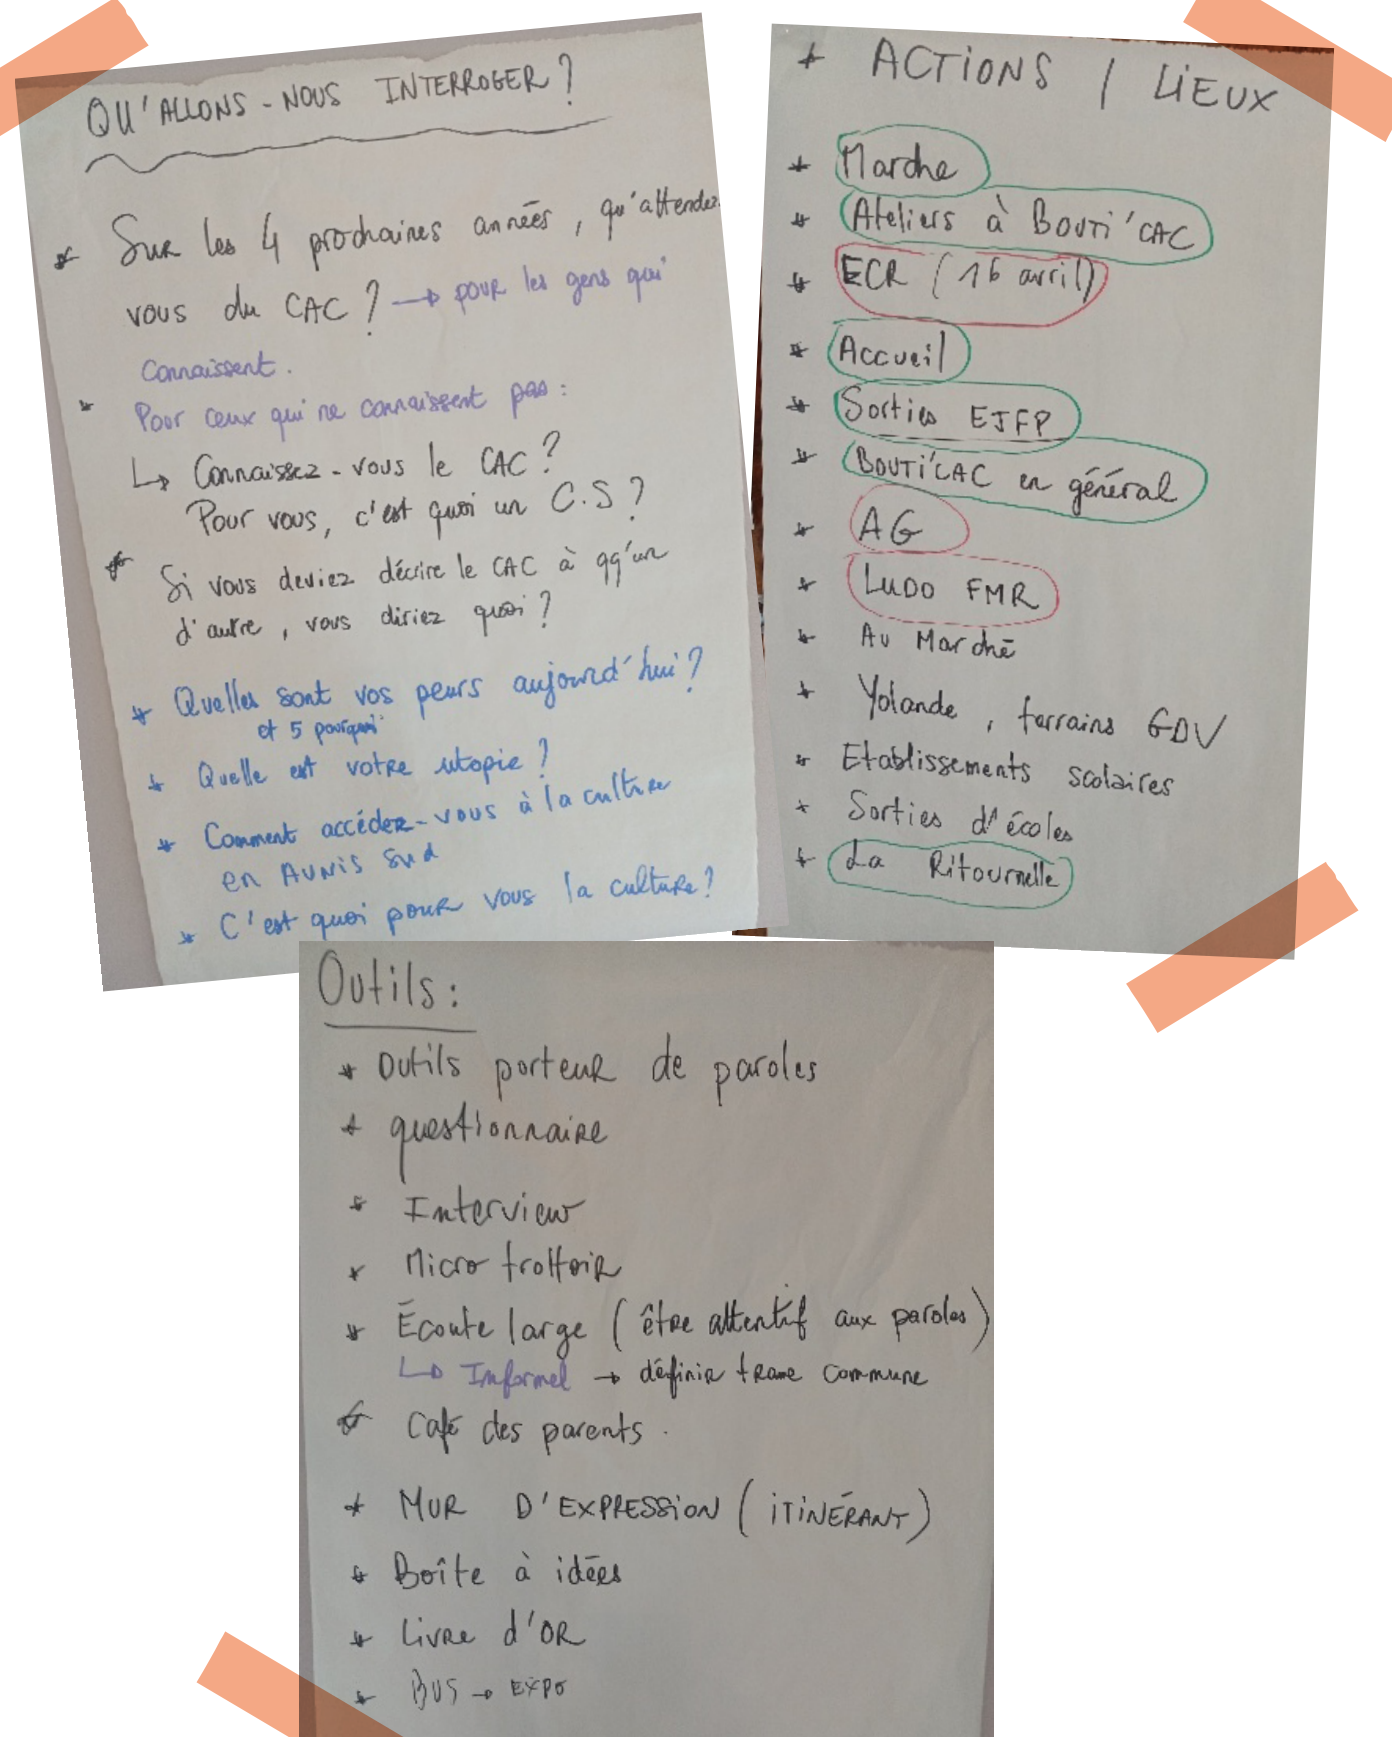 QU'ALLONS-NOUS INTERROGER ?
* Sur les 4 prochaines années, qu'attendez
vous du CAC ? → pour les gens qui
connaissent.
* Pour ceux qui ne connaissent pas :
↳ Connaissez-vous le CAC ?
Pour vous, c'est quoi un C.S ?
* Si vous deviez décrire le CAC à qq'un
d'autre, vous diriez quoi ?
* Quelles sont vos peurs aujourd'hui ?
et 5 pourquoi
* Quelle est votre utopie ?
* Comment accédez-vous à la culture
en AUNIS Sud
* C'est quoi pour vous la culture ?
+ ACTIONS / LIEUX
* Marche
* Ateliers à BOUTI'CAC
* ECR (16 avril)
* Accueil
* Sorties EJFP
* BOUTI'CAC en général
* AG
* LUDO FMR
* Au Marché
* Yolande, terrains GDV
* Etablissements scolaires
* Sorties d'écoles
* La Ritournelle
Outils :
* Outils porteur de paroles
* questionnaire
* Interview
* Micro trottoir
* Écoute large (être attentif aux paroles)
↳ Informel → définir trame commune
* Café des parents.
* MUR D'EXPRESSION (ITINÉRANT)
* Boîte à idées
* Livre d'OR
* BUS → EXPO